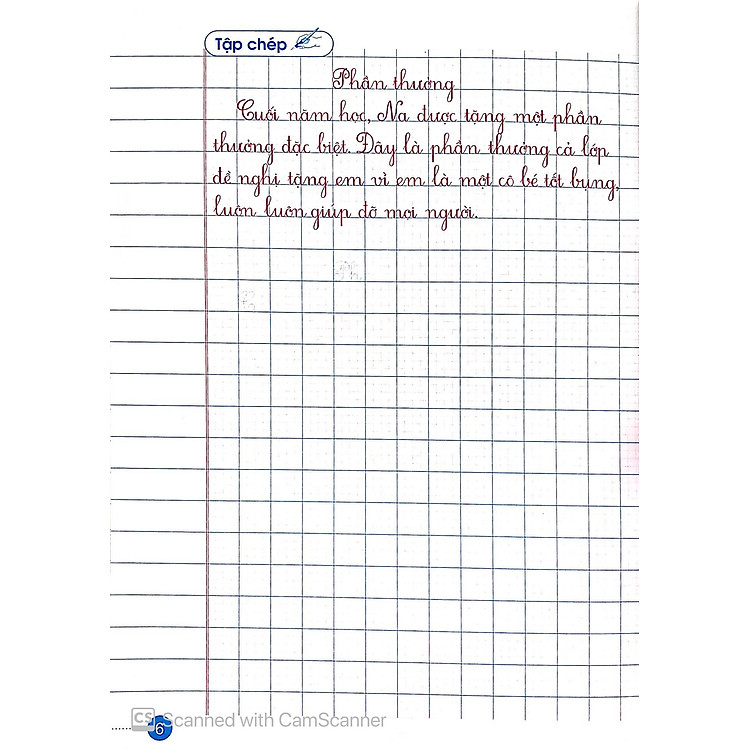 Tập chép
Phần thưởng
Cuối năm học, Na được tặng một phần
thưởng đặc biệt. Đây là phần thưởng cả lớp
đề nghị tặng em vì em là một cô bé tốt bụng,
luôn luôn giúp đỡ mọi người.
Ph
P
CS Scanned with CamScanner
6